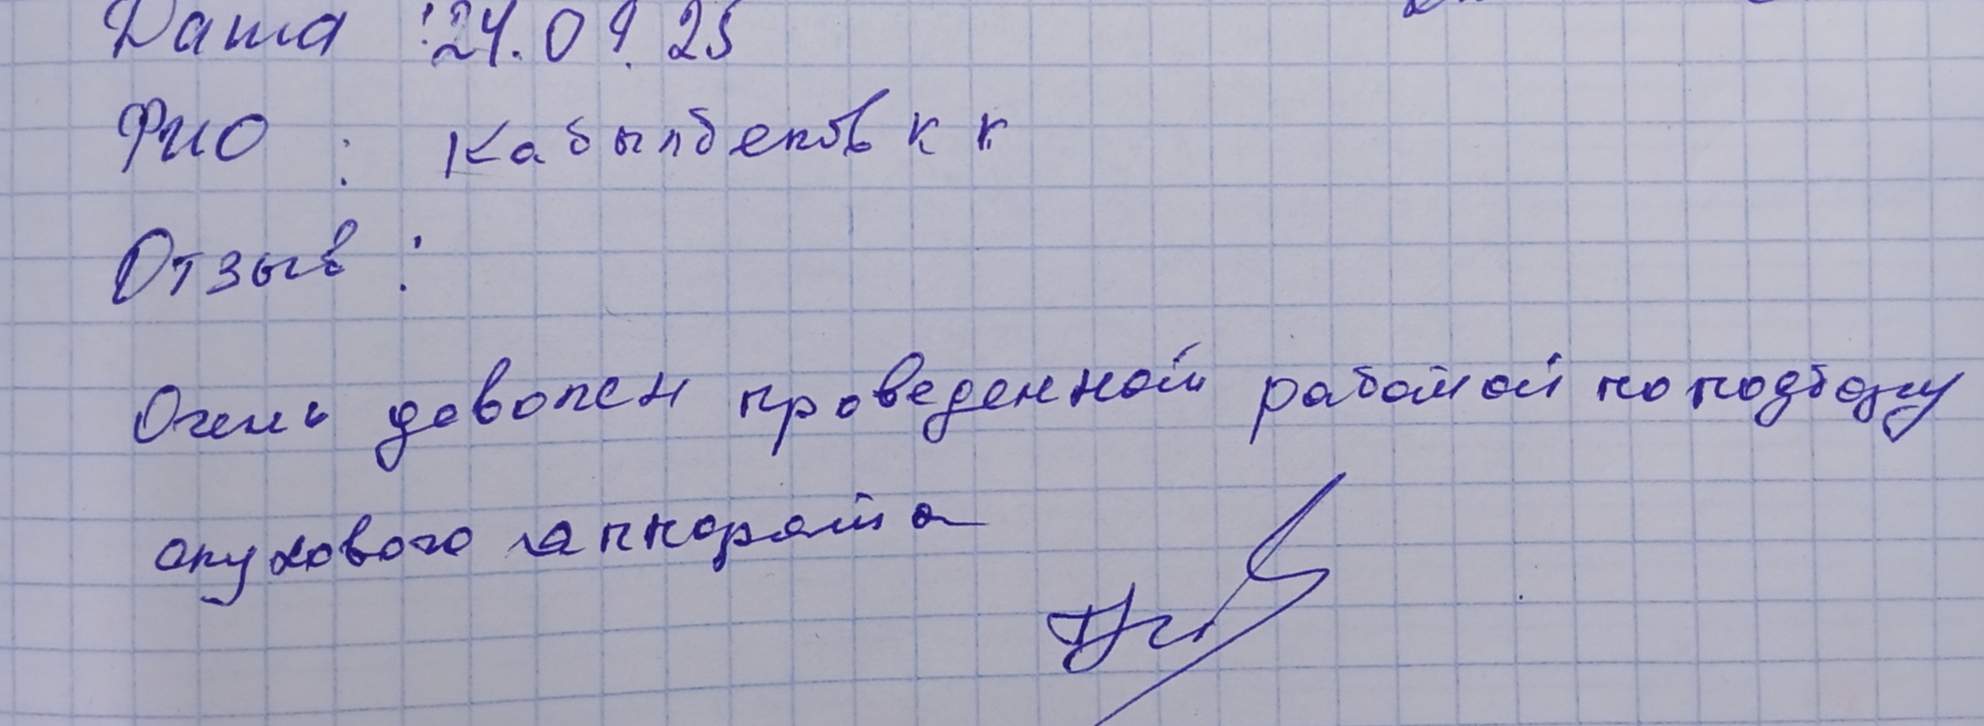 Дата : 24.09.25
ФИО : Кабылбеков К К
Отзыв :
Очень доволен проведенной работой по подбору
слухового аппарата